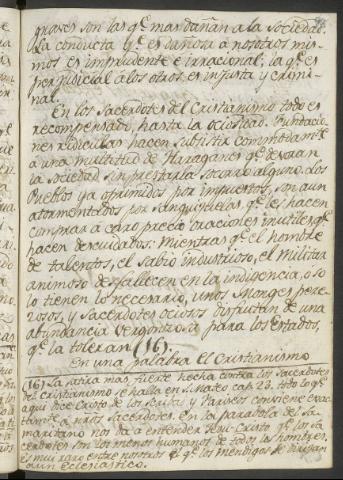 graves son las q.e mas dañan a la Sociedad.
La conducta q.e es dañosa a nosotros mis-
mos es imprudente e irracional; la q.e es
perjudicial a los otros es injusta y crimi-
nal.
En los Sacerdotes del Cristianismo todo es
recompensado, hasta la ociosidad. Fundacio-
nes ridiculas hacen subsistir commodam.te
a una multitud de Haraganes q.e devoran
la Sociedad sin prestarla socorro alguno. Los
Pueblos ya oprimidos por impuestos, son aun
atormentados por sanguijuelas q.e les hacen
comprar a caro precio oraciones inutiles q.e
hacen descuidados. Mientras q.e el hombre
de talentos, el sabio industrioso, el Militar
animoso desfallecen en la indigencia, o so-
lo tienen lo necesario, unos Monges pere-
zosos, y Sacerdotes ociosos disfrutan de una
abundancia vergonzosa para los Estados,
q.e la toleran (16).
En una palabra el Cristianismo
(16) La satira mas fuerte hecha contra los Sacerdotes
del Cristianismo se halla en S. Mateo cap. 23. todo lo q.e
aqui dice Cristo de los Scribas y Fariseos conviene exac-
tam.te a n.ros Sacerdotes. En la parabola del Sa-
maritano nos da a entender Jesu-Cristo q.e los Sa-
cerdotes son los menos humanos de todos los hombres.
es muy raro entre nosotros el q.e los Mendigos se dirijan
a un Eclesiastico.